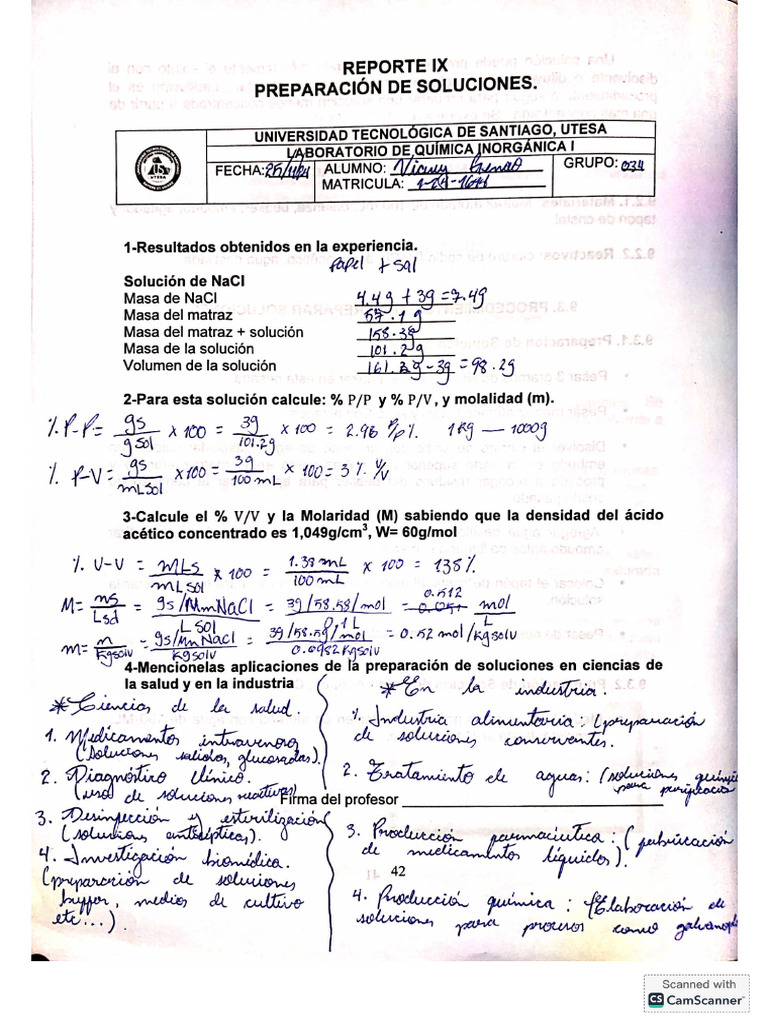 REPORTE IX
PREPARACIÓN DE SOLUCIONES.
UNIVERSIDAD TECNOLÓGICA DE SANTIAGO, UTESA
LABORATORIO DE QUÍMICA INORGÁNICA I
FECHA: 25/11/24 ALUMNO: GRUPO: 034
MATRICULA: 1-20-1641
UTESA
1-Resultados obtenidos en la experiencia.
Papel + sal
Solución de NaCl
Masa de NaCl 4.4g + 3g = 7.4g
Masa del matraz 57.1g
Masa del matraz + solución 158.3g
Masa de la solución 101.2g
Volumen de la solución 161.2g-3g = 98.2g
2-Para esta solución calcule: % P/P y % P/V, y molalidad (m).
%. P-P = gs/gsol x 100 = 3g/101.2g x 100 = 2.96 P/P% 1kg — 1000g
%. P-V = gs/mLsol x 100 = 3g/100mL x 100 = 3% P/V
3-Calcule el % V/V y la Molaridad (M) sabiendo que la densidad del ácido
acético concentrado es 1,049g/cm³, W= 60g/mol
%. V-V = mLs/mLsol x 100 = 1.38mL/100mL x 100 = 138%
M = ns/Lsd = gs/MmNaCl/L sol = 3g/58.58/mol/0,1L = 0.512 mol/L
m = n/Kgsolv = gs/MmNaCl/Kgsolv = 3g/58.5g/mol/0.0982Kgsolv = 0.52 mol/Kgsolv
4-Mencionelas aplicaciones de la preparación de soluciones en ciencias de
la salud y en la industria
*Ciencias de la salud.
1. Medicamentos intravenoso
(Soluciones salidas, glucosadas).
2. Diagnóstico clínico.
(uso de soluciones reactivas)
3. Desinfección y esterilización
(soluciones antisépticas).
4. Investigación biomédica.
(preparación de soluciones
buffer, medios de cultivo
etc...)
*En la industria.
1. Industria alimentaria: (preparación
de soluciones conservantes.
2. Tratamiento de aguas: (soluciones químic
para purificación
Firma del profesor
3. Producción farmacéutica: (fabricación
de medicamentos líquidos).
4. Producción química: (Elaboración de
soluciones para procesos como galvanopl
42
Scanned with
CS CamScanner